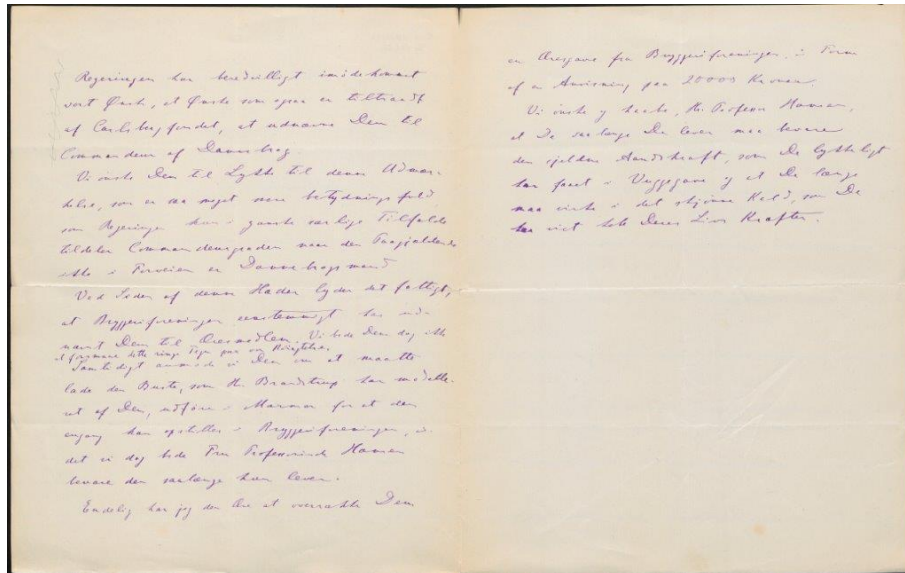 Regeringen har beredvilligt imødekommet
vort Ønske, et Ønske som ogsaa er tiltraadt
af Carlsbergfondet, at udnævne Dem til
Commandeur af Dannebrog.
Vi ønske Dem til Lykke til denne Udmær-
kelse, som er saa meget mere betydningsfuld,
som Regeringen kun i ganske særlige Tilfælde
tildeler Commandeurgraden naar den Paagjældende
ikke i Forveien er Dannebrogsmand.
Ved Siden af denne Hæder lyder det fattigt,
at Bryggeriforeningen eenstemmigt har ud-
nævnt Dem til Æresmedlem. Vi bede Dem dog ikke
at forsmaae dette ringe Tegn paa vor
Samtidigt anmode vi Dem om at maatte
lade den Buste, som Hr. Brandstrup har modelle-
ret af Dem, udføre i Marmor for at den
engang kan opstilles i Bryggeriforeningen, i-
det vi dog bede Fru Professorinde Hansen
bevare den saalænge hun lever.
Endelig har jeg den Ære at overrække Dem
en Æresgave fra Bryggeriforeningen, i Form
af en Anvisning paa 20000 Kroner.
Vi ønske og haabe, Hr. Professor Hansen,
at De saalænge De lever maa bevare
den sjeldne Aandskraft, som De lykkeligt
har faaet i Vuggegave og at De længe
maa virke i det skjønne Kald, som De
har viet hele Deres Livs Kræfter.